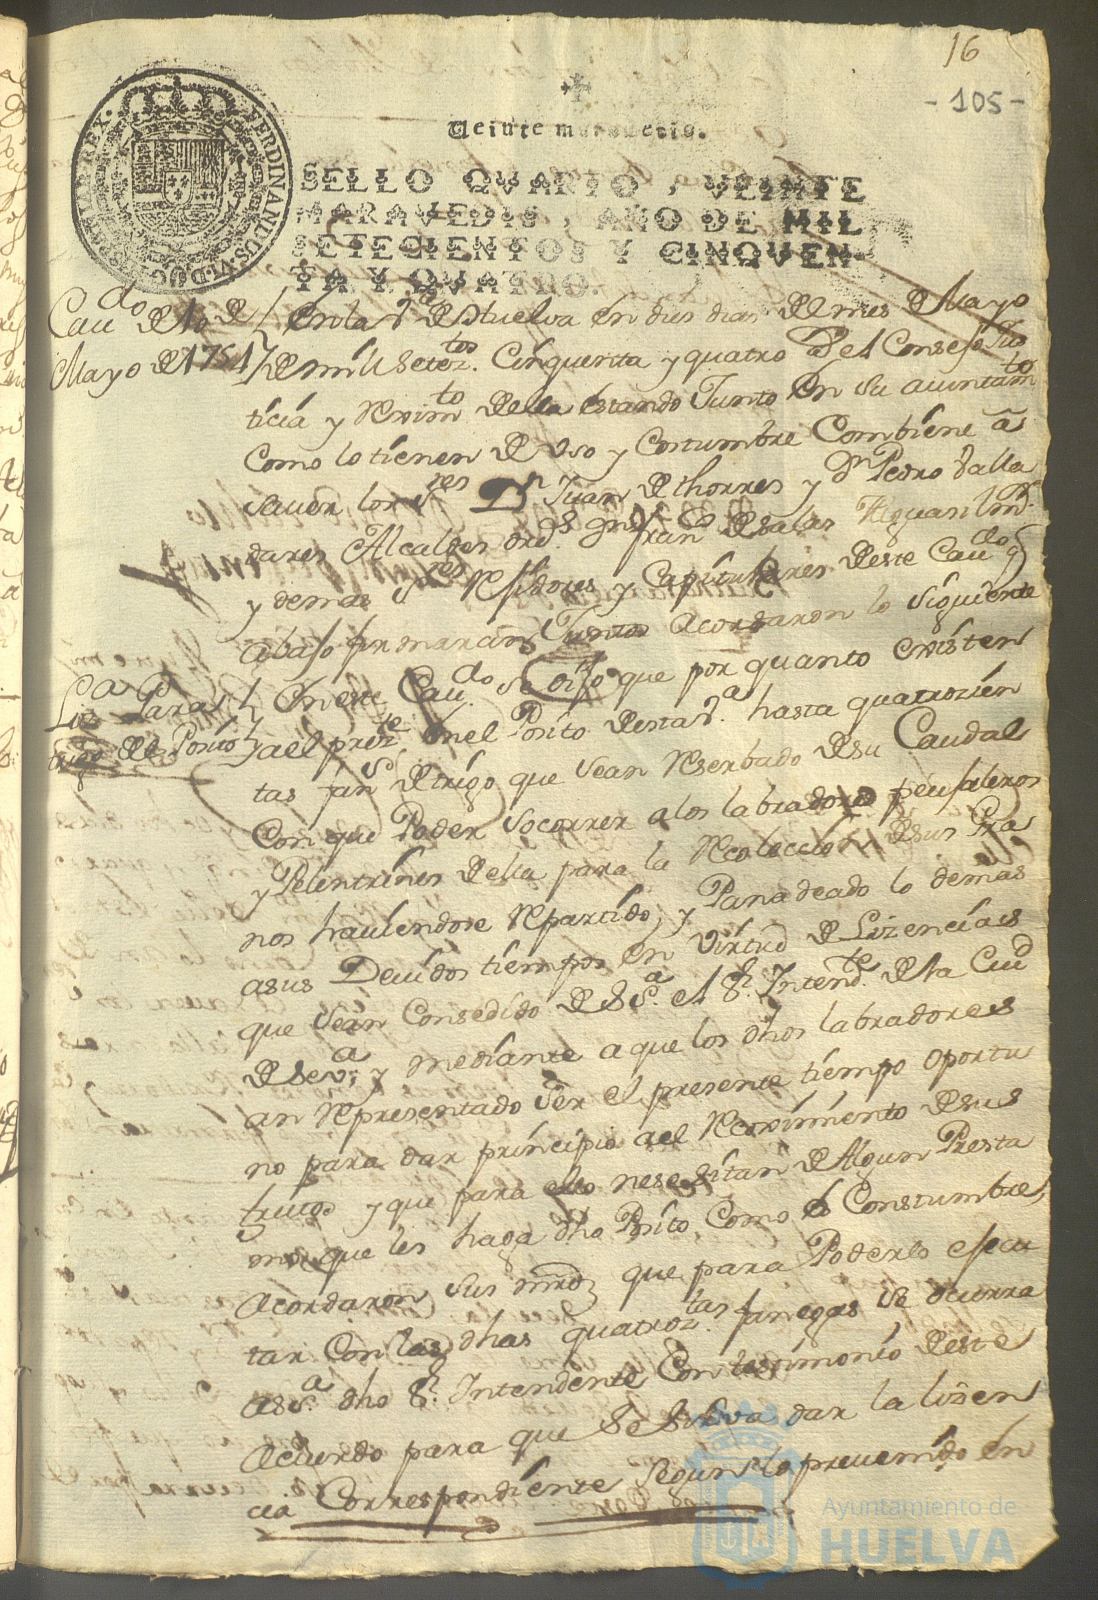 16
- 105 -
Veinte maravedis.
SELLO QVARTO, VEINTE
MARAVEDIS, AÑO DE MIL
SETECIENTOS Y CINQVEN-
TA Y QVATRO.
FERDINANDUS VI D G HISPANIAR REX
Cau.do de 10 de
Mayo de 1754
En la V.a de Huelva en dies dias de mes de Mayo
de mill setez.tos Cinquenta y quatro el Consejo Jus
ticia y Rexim.to de ella estando Junto en su aiuntam.to
Como lo tienen de uso y Costumbre Combiene a
sauer los S.res D.n Juan de thorres y D.n Pedro Valla
dares Alcaldes ord.s Fran.co de salas Alguasil m.r
y demas S.res Residores y Capitulares deste Cau.do q
abajo firmaran Juntos Acordaron lo siguiente
Liz.a Para el
trigo de el Posito
En este Cau.do se Dijo que por quanto existen
a el prez.te en el Posito de esta V.a hasta quatrozien
tas fan.s de trigo que sean Reserbado de su Caudal
Con que Poder socorrer a los labradores peujaleros
y Pelentrines de ella para la Recoleccion de sus Gra
nos hauiendose Repartido, y Panadeado lo demas
asus Deuidos tiempos en virtud de Lizencias
que sean Consedido de S S.a el S.r Intend.te de la Ciud
de Sev.a y mediante a que los dhos labradores
an Representado ser el presente tiempo oportu
no para dar principio a el Recoximiento de sus
frutos y que para ello nesesitan de Algun Presta
mo que les haga dho Posito, Como es Constumbre,
Acordaron sus mrds que para Poderlo ejecu
tar Con las dhas quatroz.tas fanegas se ocurra
a su S.a dho S.r Intendente Con testimonio deste
Acuerdo para que Se Sirva dar la lizen
cia Correspondiente segun lo preuenido en
Ayuntamiento de
HUELVA